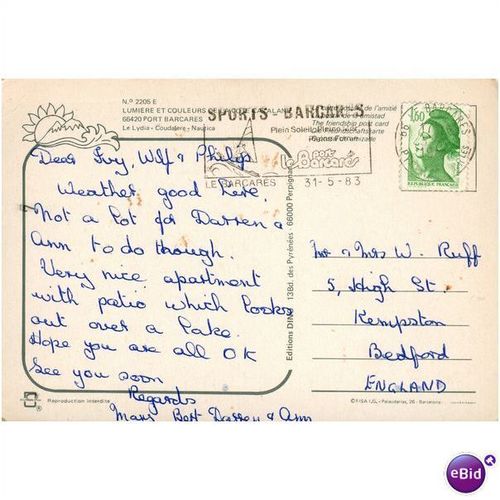 N.º 2205 E
LUMIÈRE ET COULEURS DE LA CÔTE CATALANE
66420 PORT BARCARES
Le Lydia - Coudalère - Nautica
SPORTS - BARCARES
Plein Soleil
port
le Barcarès
LE BARCARES
31-5-83
de l'amitié
The friendship post card
1,60
REPUBLIQUE FRANÇAISE
Dear Ivy, Wilf & Philip
Weather good here.
Not a lot for Darren &
Ann to do though.
Very nice apartment
with patio which looks
out over a lake.
Hope you are all OK
See you soon
Regards
Bert Darren & Ann
Editions DINO 13Bd. des Pyrénées 66000 Perpignan
Mr & Mrs W. Ruff
5, High St.
Kempston
Bedford
ENGLAND
Reproduction interdite
©FISA I.G. - Palaudarias, 26 - Barcelona
eBid